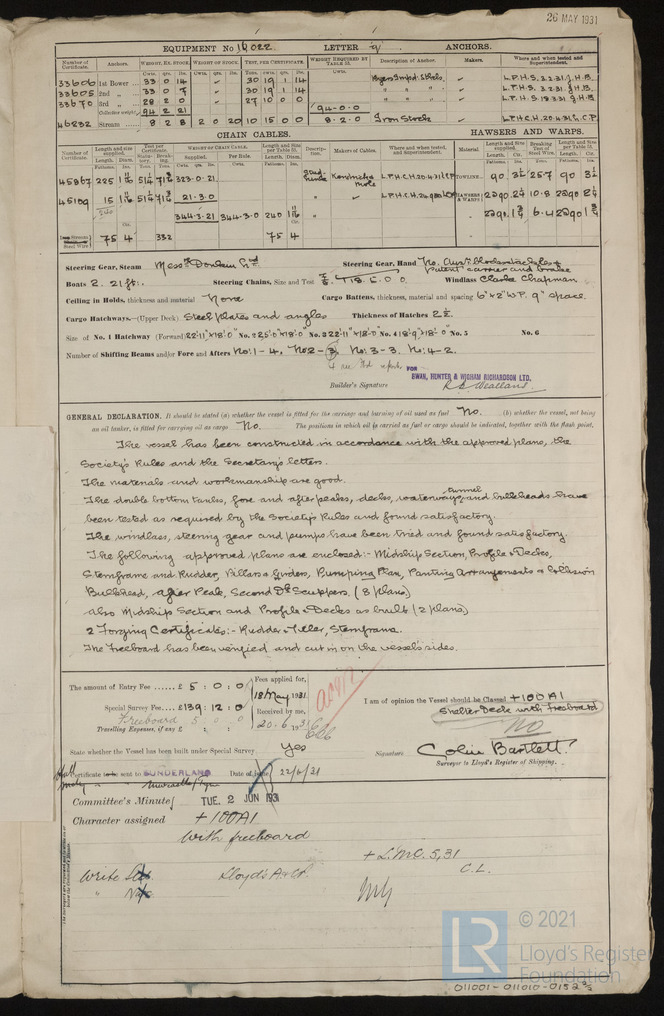 26 MAY 1931
EQUIPMENT No 10022 LETTER q ANCHORS.
Number of Certificate. Anchors. WEIGHT, EX. STOCK. WEIGHT OF STOCK. TEST, PER CERTIFICATE. WEIGHT REQUIRED BY TABLE 31. Description of Anchor. Makers. Where and when tested and Superintendent.
33606 1st Bower 33 0 14 30 19 1 14 L.P.H.S. 3.2.31. H.B.
33605 2nd " 33 0 7 30 19 1 14 " " " L.P.H.S. 3.2.31. H.B.
33670 3rd " 28 2 0 27 10 0 0 " " " L.P.H.S. 18.3.31. H.B.
Collective weight 94 2 21 94-0-0
46232 Stream 8 2 8 2 0 20 10 15 0 0 8.2.0 Iron Stock L.P.H.C.H. 20.4.31 C.P.
CHAIN CABLES. HAWSERS AND WARPS.
Number of Certificate. Length and size supplied. Test per Certificate. WEIGHT OF CHAIN CABLE. Length and size per Table 31. Description. Makers of Cables. Where and when tested, and Superintendent. Material. Length and Size supplied. Breaking Test of Steel Wire. Length and Size per Table 31.
Supplied. Per Rule.
45867 225 1 11/16 323-0-21 TOWLINE 90 3 1/4 25.7 90 3 1/4
45109 15 1 11/16 21-3-0 " HAWSERS & WARPS 2@90 2 1/4 10.8 2@90 2 1/4
240 344-3-21 344-3-0 240 1 11/16 " 2@90 1 3/4 6.4 2@90 1 3/4
Steel Wire 75 4 332 75 4
Steering Gear, Steam Messrs Donkin Ltd Steering Gear, Hand No.
patent carrier and brake
Boats 2. 21 ft. Steering Chains, Size and Test Windlass Clarke Chapman
Ceiling in Holds, thickness and material None Cargo Battens, thickness, material and spacing 6" x 2" W.P. 9" space.
Cargo Hatchways.—(Upper Deck). Steel plates and angles Thickness of Hatches 2½
Size of No. 1 Hatchway (Forward) 22'-11" x 18'-0" No. 2 25'-0" x 18'-0" No. 3 22'-11" x 18'-0" No. 4 18'-9" x 18'-0" No. 5 No. 6
Number of Shifting Beams and/or Fore and Afters No: 1-4. No 2-3. No: 3-3. No: 4-2.
FOR
SWAN, HUNTER & WIGHAM RICHARDSON LTD.
Builder's Signature
GENERAL DECLARATION. It should be stated (a) whether the vessel is fitted for the carriage and burning of oil used as fuel No. (b) whether the vessel, not being
an oil tanker, is fitted for carrying oil as cargo No. The positions in which oil is carried as fuel or cargo should be indicated, together with the flash point.
The vessel has been constructed in accordance with the approved plans, the
Society's Rules and the Secretary's letters.
The materials and workmanship are good.
The double bottom tanks, fore and after peaks, decks, waterways, tunnel and bulkheads have
been tested as required by the Society's Rules and found satisfactory.
The windlass, steering gear and pumps have been tried and found satisfactory.
The following approved plans are enclosed:- Midship Section, Profile & Decks,
Sternframe and Rudder, Pillars & Girders, Pumping Plan, Panting Arrangements & Collision
Bulkhead, After Peak, Second Dk Scuppers. (8 plans)
also Midship Section and Profile & Decks as built (2 plans)
2 Forging Certificates:- Rudder & Tiller, Sternframe.
The Freeboard has been verified and cut in on the vessel's sides.
The amount of Entry Fee £ 5 : 0 : 0 Fees applied for,
18 May 1931.
Special Survey Fee £ 139 : 12 : 0 Received by me,
Freeboard 5 0 0 20.6.1931
Travelling Expenses, if any £ : :
I am of opinion the Vessel should be Classed +100A1
Shelter Deck with freeboard
No
State whether the Vessel has been built under Special Survey Yes
Signature Colin Bartlett
Surveyor to Lloyd's Register of Shipping.
Certificate to be sent to SUNDERLAND Date of issue 22/6/31
Newcastle/Tyne
Committee's Minute TUE. 2 JUN 1931
Character assigned +100A1
With freeboard
+ L.M.C. 5,31
C.L.
Write Lloyd's A & C.P.
LR
© 2021
Lloyd's Register
Foundation
011001-011010-0152 2/2